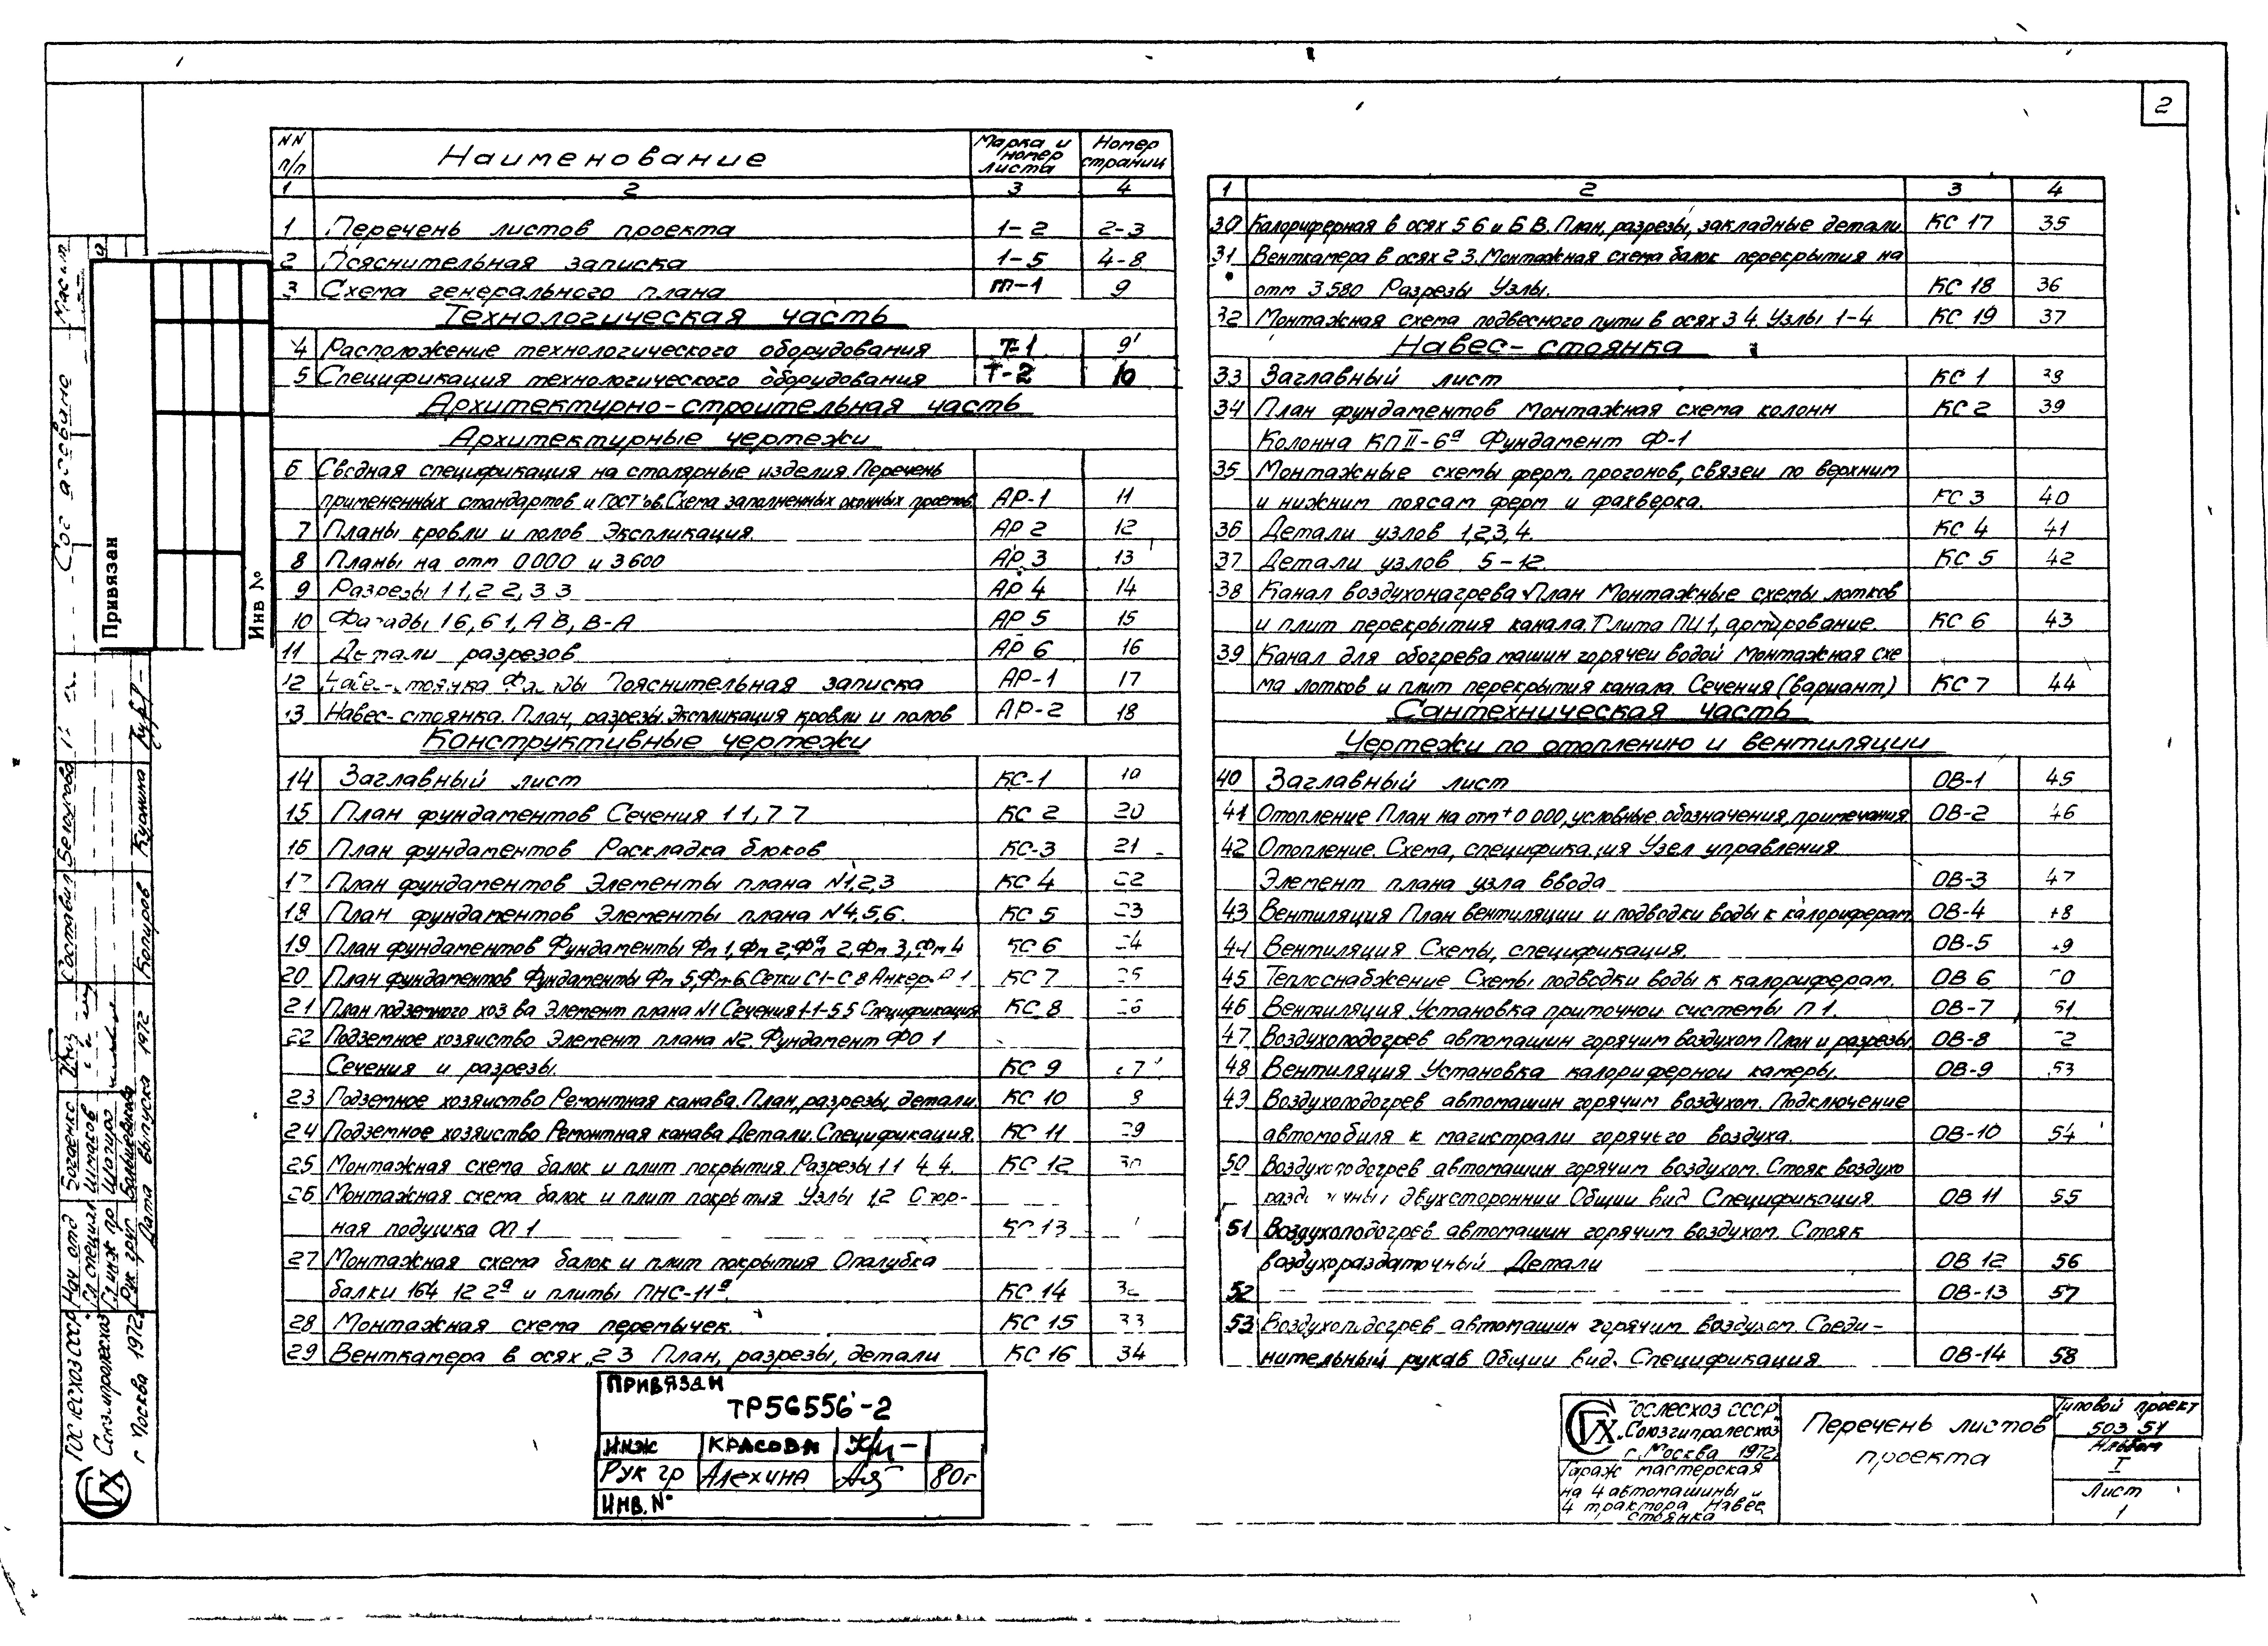 2
NN п/п Наименование Марка и номер листа Номер страниц
1 2 3 4
1 Перечень листов проекта 1-2 2-3
2 Пояснительная записка 1-5 4-8
3 Схема генерального плана ГП-1 9
Технологическая часть
4 Расположение технологического оборудования Т-1 9'
5 Спецификация технологического оборудования Т-2 10
Архитектурно-строительная часть
Архитектурные чертежи
6 Сводная спецификация на столярные изделия. Перечень
примененных стандартов и ГОСТ'ов. Схема заполненных оконных проемов. АР-1 11
7 Планы кровли и полов Экспликация. АР 2 12
8 Планы на отм 0000 и 3600 АР 3 13
9 Разрезы 1 1, 2 2, 3 3 АР 4 14
10 Фасады 1 6, 6 1, А В, В-А АР 5 15
11 Детали разрезов АР 6 16
12 Навес-стоянка Фасады Пояснительная записка АР-1 17
13 Навес-стоянка. План, разрезы. Экспликация кровли и полов АР-2 18
Конструктивные чертежи
14 Заглавный лист КС-1 19
15 План фундаментов Сечения 1 1, 7 7 КС 2 20
16 План фундаментов Раскладка блоков КС-3 21
17 План фундаментов Элементы плана N1,2,3 КС 4 22
18 План фундаментов Элементы плана N4,5,6. КС 5 23
19 План фундаментов Фундаменты Фм 1, Фм 2, Фм 2а, Фм 3, Фм 4 КС 6 24
20 План фундаментов Фундаменты Фм 5, Фм-6. Сетки С1-С 8 Анкер 1 КС 7 25
21 План подземного хоз ва Элемент плана N1 Сечения 1-1-5 5 Спецификация КС 8 26
22 Подземное хозяйство Элемент плана N2. Фундамент ФО 1
Сечения и разрезы. КС 9 27
23 Подземное хозяйство Ремонтная канава. План, разрезы, детали. КС 10
24 Подземное хозяйство Ремонтная канава Детали. Спецификация. КС 11 29
25 Монтажная схема балок и плит покрытия. Разрезы 1 1 4 4. КС 12 30
26 Монтажная схема балок и плит покрытия Узлы 1,2 Опор-
ная подушка ОП 1 КС 13
27 Монтажная схема балок и плит покрытия Опалубка
балки 164 12 2а и плиты ПНС-11а. КС 14 32
28 Монтажная схема перемычек. КС 15 33
29 Венткамера в осях 2 3 План, разрезы, детали КС 16 34
1 2 3 4
30 Калориферная в осях 5 6 и Б В. План, разрезы, закладные детали КС 17 35
31 Венткамера в осях 2 3. Монтажная схема балок перекрытия на
отм 3 580 Разрезы Узлы. КС 18 36
32 Монтажная схема подвесного пути в осях 3 4. Узлы 1-4 КС 19 37
Навес-стоянка
33 Заглавный лист КС 1 38
34 План фундаментов Монтажная схема колонн КС 2 39
Колонна КП II-6а Фундамент Ф-1
35 Монтажные схемы ферм, прогонов, связей по верхним
и нижним поясам ферм и фахверка. КС 3 40
36 Детали узлов 1,2,3,4. КС 4 41
37 Детали узлов 5-12. КС 5 42
38 Канал воздухонагрева План Монтажные схемы лотков
и плит перекрытия канала. Плита ПЦ1, армирование. КС 6 43
39 Канал для обогрева машин горячей водой Монтажная схе
ма лотков и плит перекрытия канала. Сечения (вариант) КС 7 44
Сантехническая часть
Чертежи по отоплению и вентиляции
40 Заглавный лист ОВ-1 45
41 Отопление План на отм +0 000, условные обозначения, примечания ОВ-2 46
42 Отопление. Схема, спецификация Узел управления
Элемент плана узла ввода ОВ-3 47
43 Вентиляция План вентиляции и подводки воды к калориферам ОВ-4 48
44 Вентиляция Схемы, спецификация. ОВ-5 49
45 Теплоснабжение Схемы подводки воды к калориферам. ОВ 6 50
46 Вентиляция Установка приточной системы П 1. ОВ-7 51
47 Воздухоподогрев автомашин горячим воздухом План и разрезы ОВ-8 52
48 Вентиляция Установка калориферной камеры. ОВ-9 53
49 Воздухоподогрев автомашин горячим воздухом. Подключение
автомобиля к магистрали горячего воздуха. ОВ-10 54
50 Воздухоподогрев автомашин горячим воздухом. Стояк воздухо
раздаточный двухсторонний Общий вид Спецификация. ОВ 11 55
51 Воздухоподогрев автомашин горячим воздухом. Стояк
воздухораздаточный Детали ОВ 12 56
52 ОВ-13 57
53 Воздухоподогрев автомашин горячим воздухом. Соеди-
нительный рукав Общий вид. Спецификация ОВ-14 58
Привязан
ТР56556-2
Инж Красова
Рук гр Алехина 80г
Инв. №
Гослесхоз СССР
Союзгипролесхоз
г. Москва 1972
Гараж мастерская
на 4 автомашины и
4 трактора Навес
стоянка
Перечень листов
проекта
Типовой проект
503 51
Альбом
I
Лист
1
Привязан
Инв №
Согласовано
Составил Белоусова
Копировал Кузмина
Нач отд Богаенко
Гл специал Шмаков
Гл инж пр Шапиро
Рук груп
Дата выпуска 1972
Гослесхоз СССР
Союзгипролесхоз
г Москва 1972г